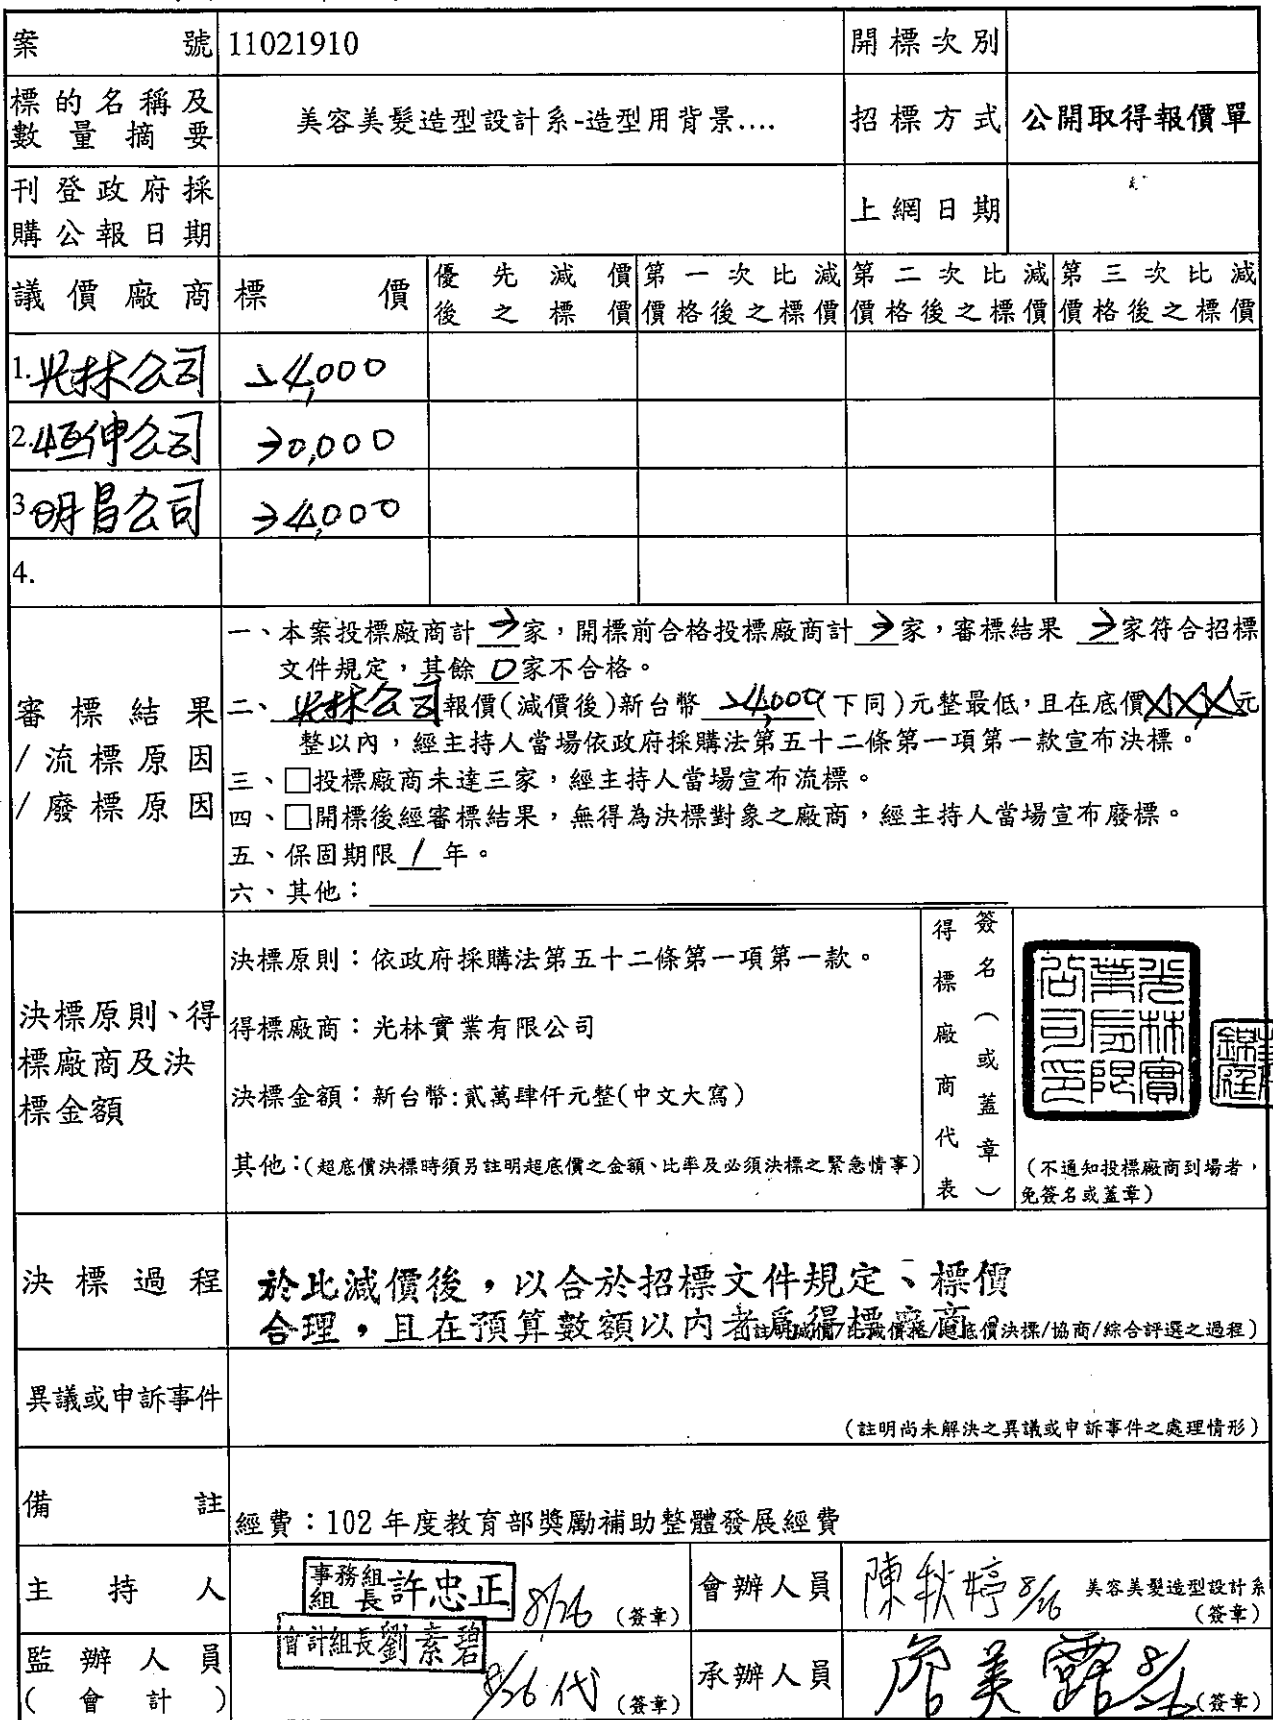 案號 11021910 開標次別
標的名稱及數量摘要 美容美髮造型設計系-造型用背景.... 招標方式 公開取得報價單
刊登政府採購公報日期 上網日期
議價廠商 標價 優先減價後之標價 第一次比減價格後之標價 第二次比減價格後之標價 第三次比減價格後之標價
1.光林公司 24,000
2.恆伸公司 30,000
3.明昌公司 34,000
4.
審標結果/流標原因/廢標原因
一、本案投標廠商計 3 家，開標前合格投標廠商計 3 家，審標結果 3 家符合招標
文件規定，其餘 0 家不合格。
二、光林公司報價(減價後)新台幣 24,000(下同)元整最低，且在底價XXX元
整以內，經主持人當場依政府採購法第五十二條第一項第一款宣布決標。
三、□投標廠商未達三家，經主持人當場宣布流標。
四、□開標後經審標結果，無得為決標對象之廠商，經主持人當場宣布廢標。
五、保固期限 1 年。
六、其他：
決標原則、得標廠商及決標金額
決標原則：依政府採購法第五十二條第一項第一款。
得標廠商：光林實業有限公司
決標金額：新台幣:貳萬肆仟元整(中文大寫)
其他：(超底價決標時須另註明超底價之金額、比率及必須決標之緊急情事)
得標廠商代表簽名(或蓋章)
光林實業有限公司印
(不通知投標廠商到場者，
免簽名或蓋章)
決標過程
於比減價後，以合於招標文件規定、標價
合理，且在預算數額以內者為得標廠商。
(註明減價/比減價格/超底價決標/協商/綜合評選之過程)
異議或申訴事件
(註明尚未解決之異議或申訴事件之處理情形)
備註 經費：102 年度教育部獎勵補助整體發展經費
主持人 事務組組長 許忠正 8/26 (簽章) 會辦人員 陳秋婷 8/26 美容美髮造型設計系 (簽章)
監辦人員(會計) 會計組長 劉素碧 8/26 代 (簽章) 承辦人員 詹美露 8/26 (簽章)